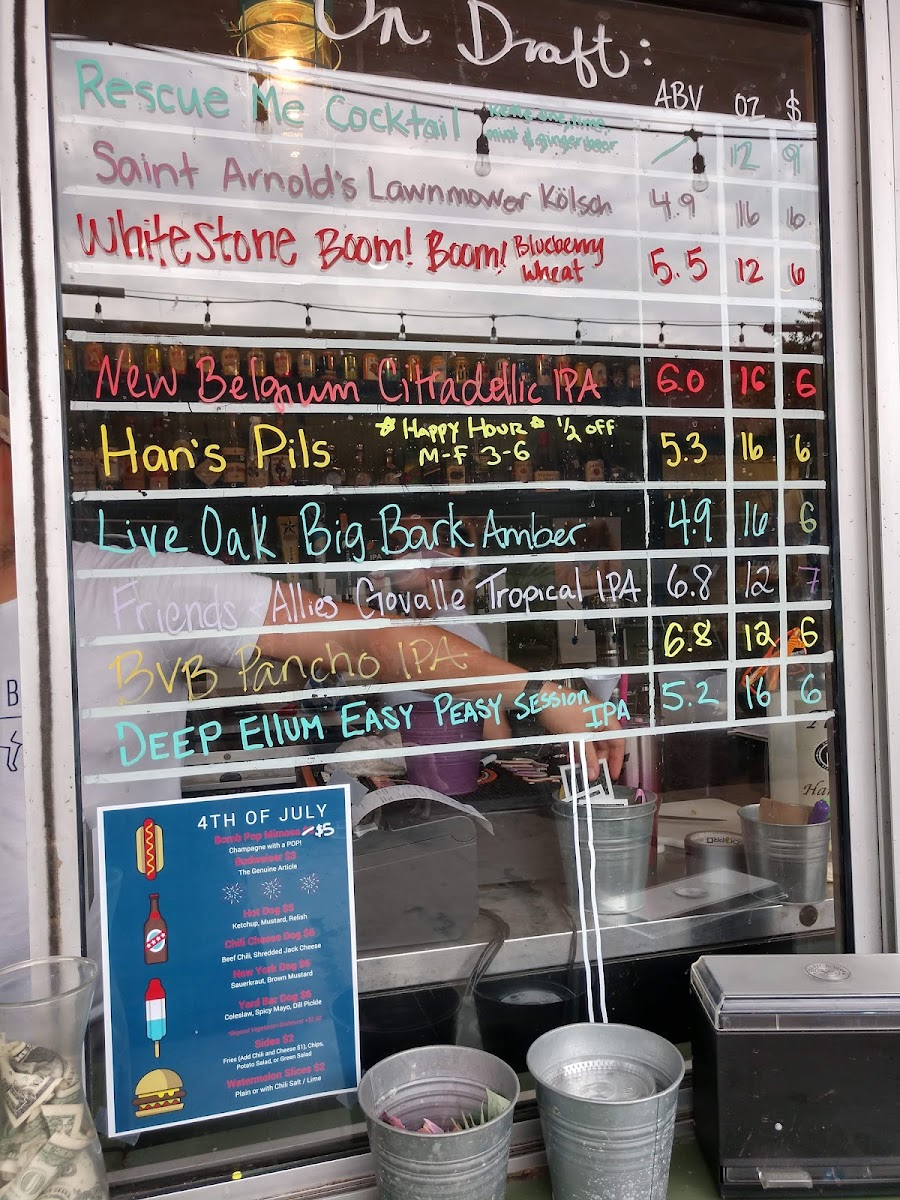 On Draft:
ABV OZ $
Rescue Me Cocktail mint & ginger beer 12 9
Saint Arnold's Lawnmower Kölsch 4.9 16 6
Whitestone Boom! Boom! Blueberry Wheat 5.5 12 6
New Belgium Citradellic IPA 6.0 16 6
Han's Pils *Happy Hour* 1/2 off M-F 3-6 5.3 16 6
Live Oak Big Bark Amber 4.9 16 6
Friends & Allies Govalle Tropical IPA 6.8 12 7
BVB Pancho IPA 6.8 12 6
Deep Ellum Easy Peasy Session IPA 5.2 16 6
4TH OF JULY
Bomb Pop Mimosa $5
Champagne with a POP!
Budweiser $3
The Genuine Article
Hot Dog $5
Ketchup, Mustard, Relish
Chili Cheese Dog $6
Beef Chili, Shredded Jack Cheese
New York Dog $6
Sauerkraut, Brown Mustard
Yard Bar Dog $6
Coleslaw, Spicy Mayo, Dill Pickle
Sides $2
Fries (Add Chili and Cheese $1), Chips,
Potato Salad, or Green Salad
Watermelon Slices $2
Plain or with Chili Salt / Lime